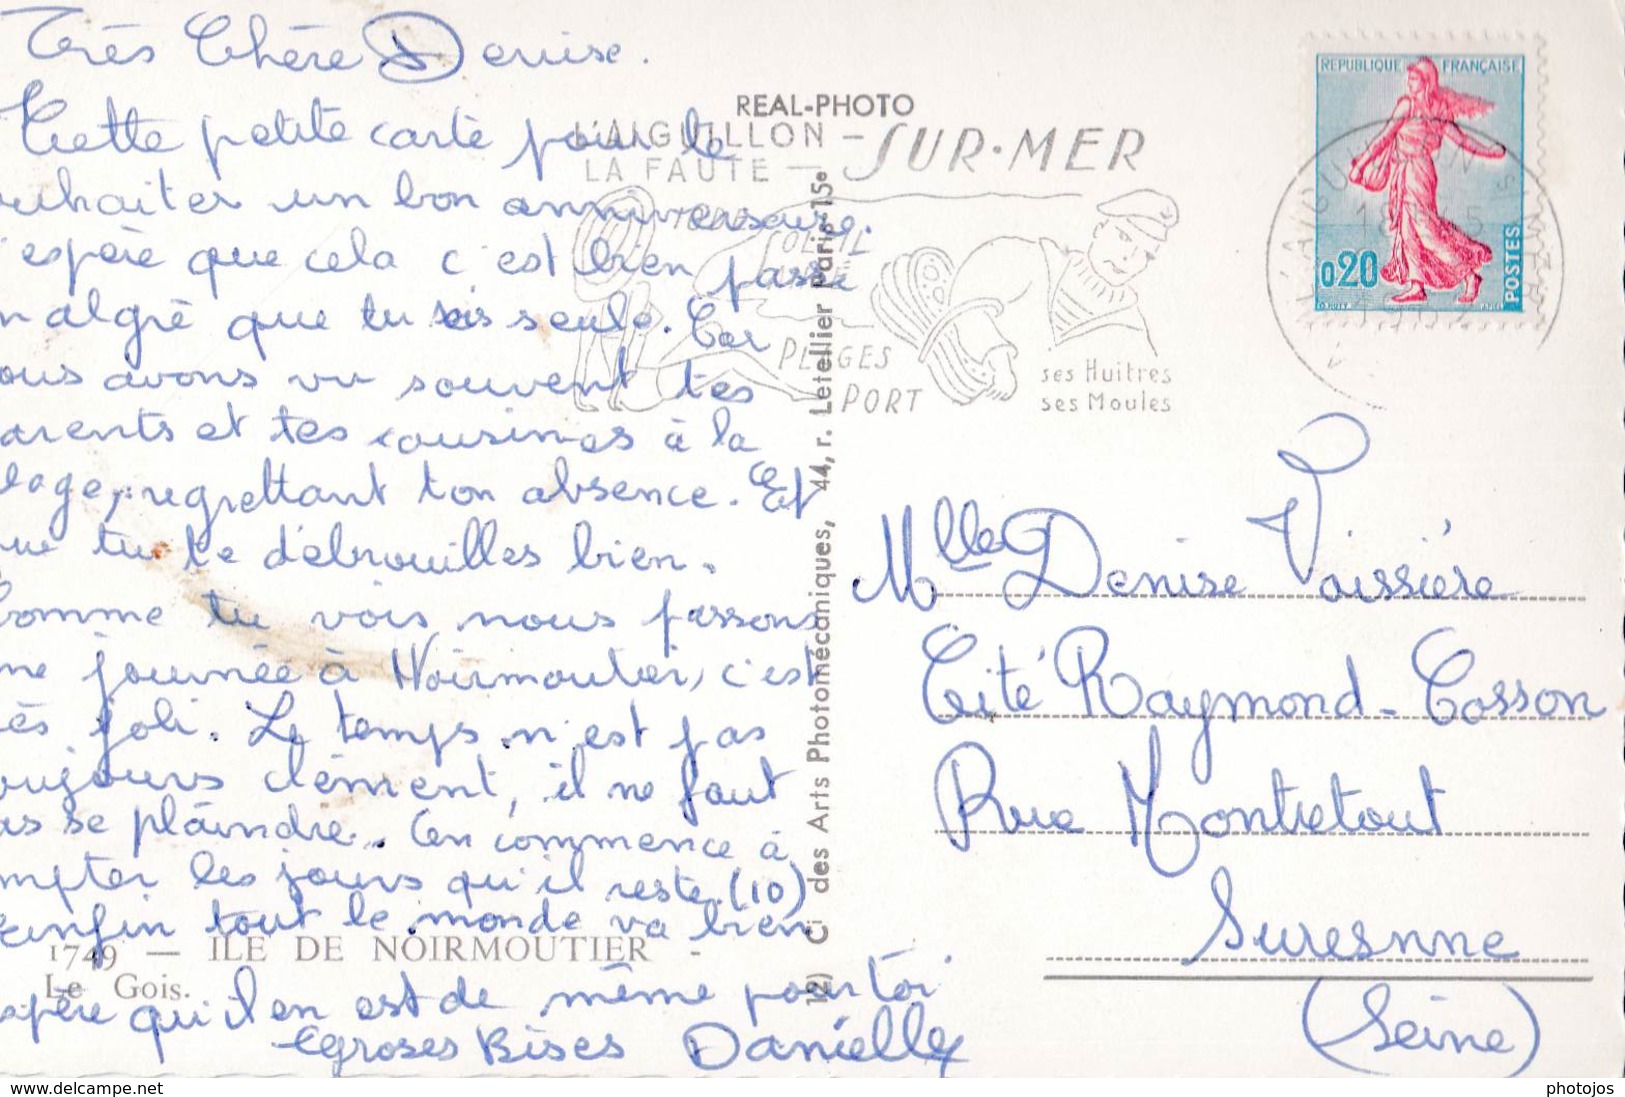 Très Chère Denise.
Cette petite carte pour te
ouhaiter un bon anniversaire.
'espère que cela c'est bien passé
algré que tu sois seule. Car
ous avons vu souvent tes
arents et tes cousines à la
lage, regrettant ton absence. Et
ue tu te débrouilles bien.
Comme tu vois nous passons
ne journée à Noirmoutier, c'est
ès joli. Le temps n'est pas
oujours clément, il ne faut
as se plaindre. On commence à
mpter les jours qu'il reste. (10)
enfin tout le monde va bien
spère qu'il en est de même pour toi
Grosses Bises Danielle
1749 — ILE DE NOIRMOUTIER -
Le Gois.
REAL-PHOTO
L'AIGUILLON — SUR·MER
LA FAUTE —
SOLEIL
PLAGES
PORT
ses Huitres
ses Moules
12) Ci des Arts Photomécaniques, 44, r. Letellier paris-15e
REPUBLIQUE FRANÇAISE
0,20
POSTES
Mlle Denise Vaissière
Cité Raymond-Cosson
Rue Montretout
Suresnne
(Seine)
www.delcampe.net
photojos